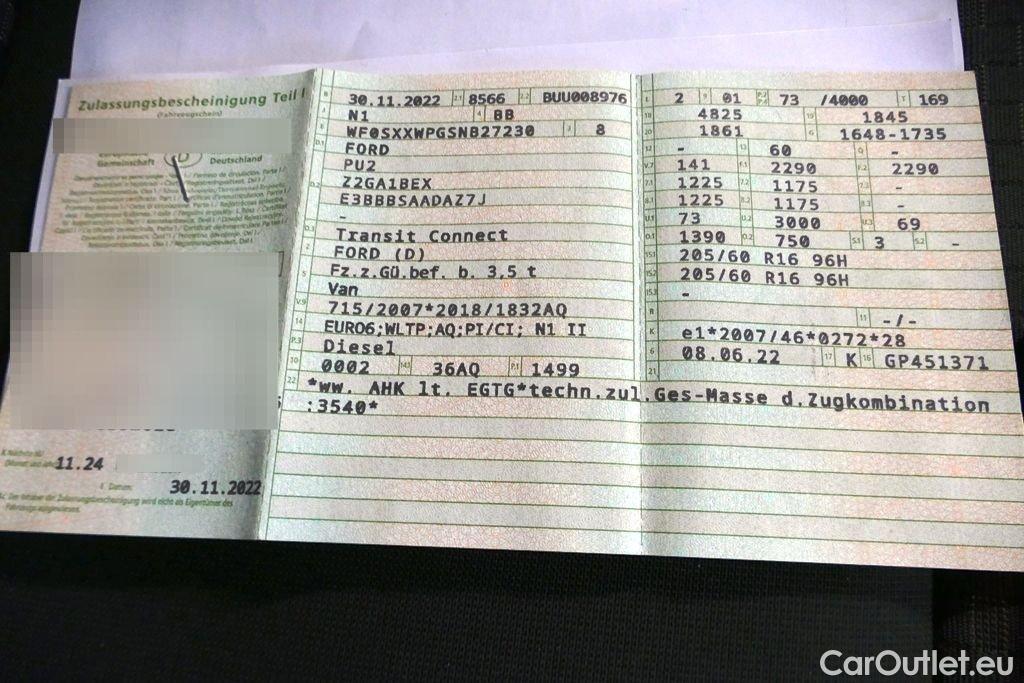 Zulassungsbescheinigung Teil I
(Fahrzeugschein)
Europäische
Gemeinschaft D Deutschland
11.24
30.11.2022
B 30.11.2022 2.1 8566 2.2 BUU008976
J N1 4 BB
E WF0SXXWPGSNB27230 3 8
D.1 FORD
PU2
D.2 Z2GA1BEX
E3BBBSAADAZ7J
-
D.3 Transit Connect
2 FORD (D)
5 Fz.z.Gü.bef. b. 3,5 t
Van
V.9 715/2007*2018/1832AQ
14 EURO6;WLTP;AQ;PI/CI; N1 II
P.3 Diesel
10 0002 14.1 36AQ P.1 1499
22 *ww. AHK lt. EGTG*techn.zul.Ges-Masse d.Zugkombination
:3540*
L 2 9 01 P.2 P.4 73 /4000 T 169
18 4825 19 1845
20 1861 G 1648-1735
12 - 13 60 Q -
V.7 141 F.1 2290 F.2 2290
7.1 1225 7.2 1175 7.3 -
8.1 1225 8.2 1175 8.3 -
U.1 73 U.2 3000 U.3 69
O.1 1390 O.2 750 S.1 3 S.2 -
15.1 205/60 R16 96H
15.2 205/60 R16 96H
15.3 -
R 11 -/-
K e1*2007/46*0272*28
6 08.06.22 17 K 16 GP451371
21
CarOutlet.eu